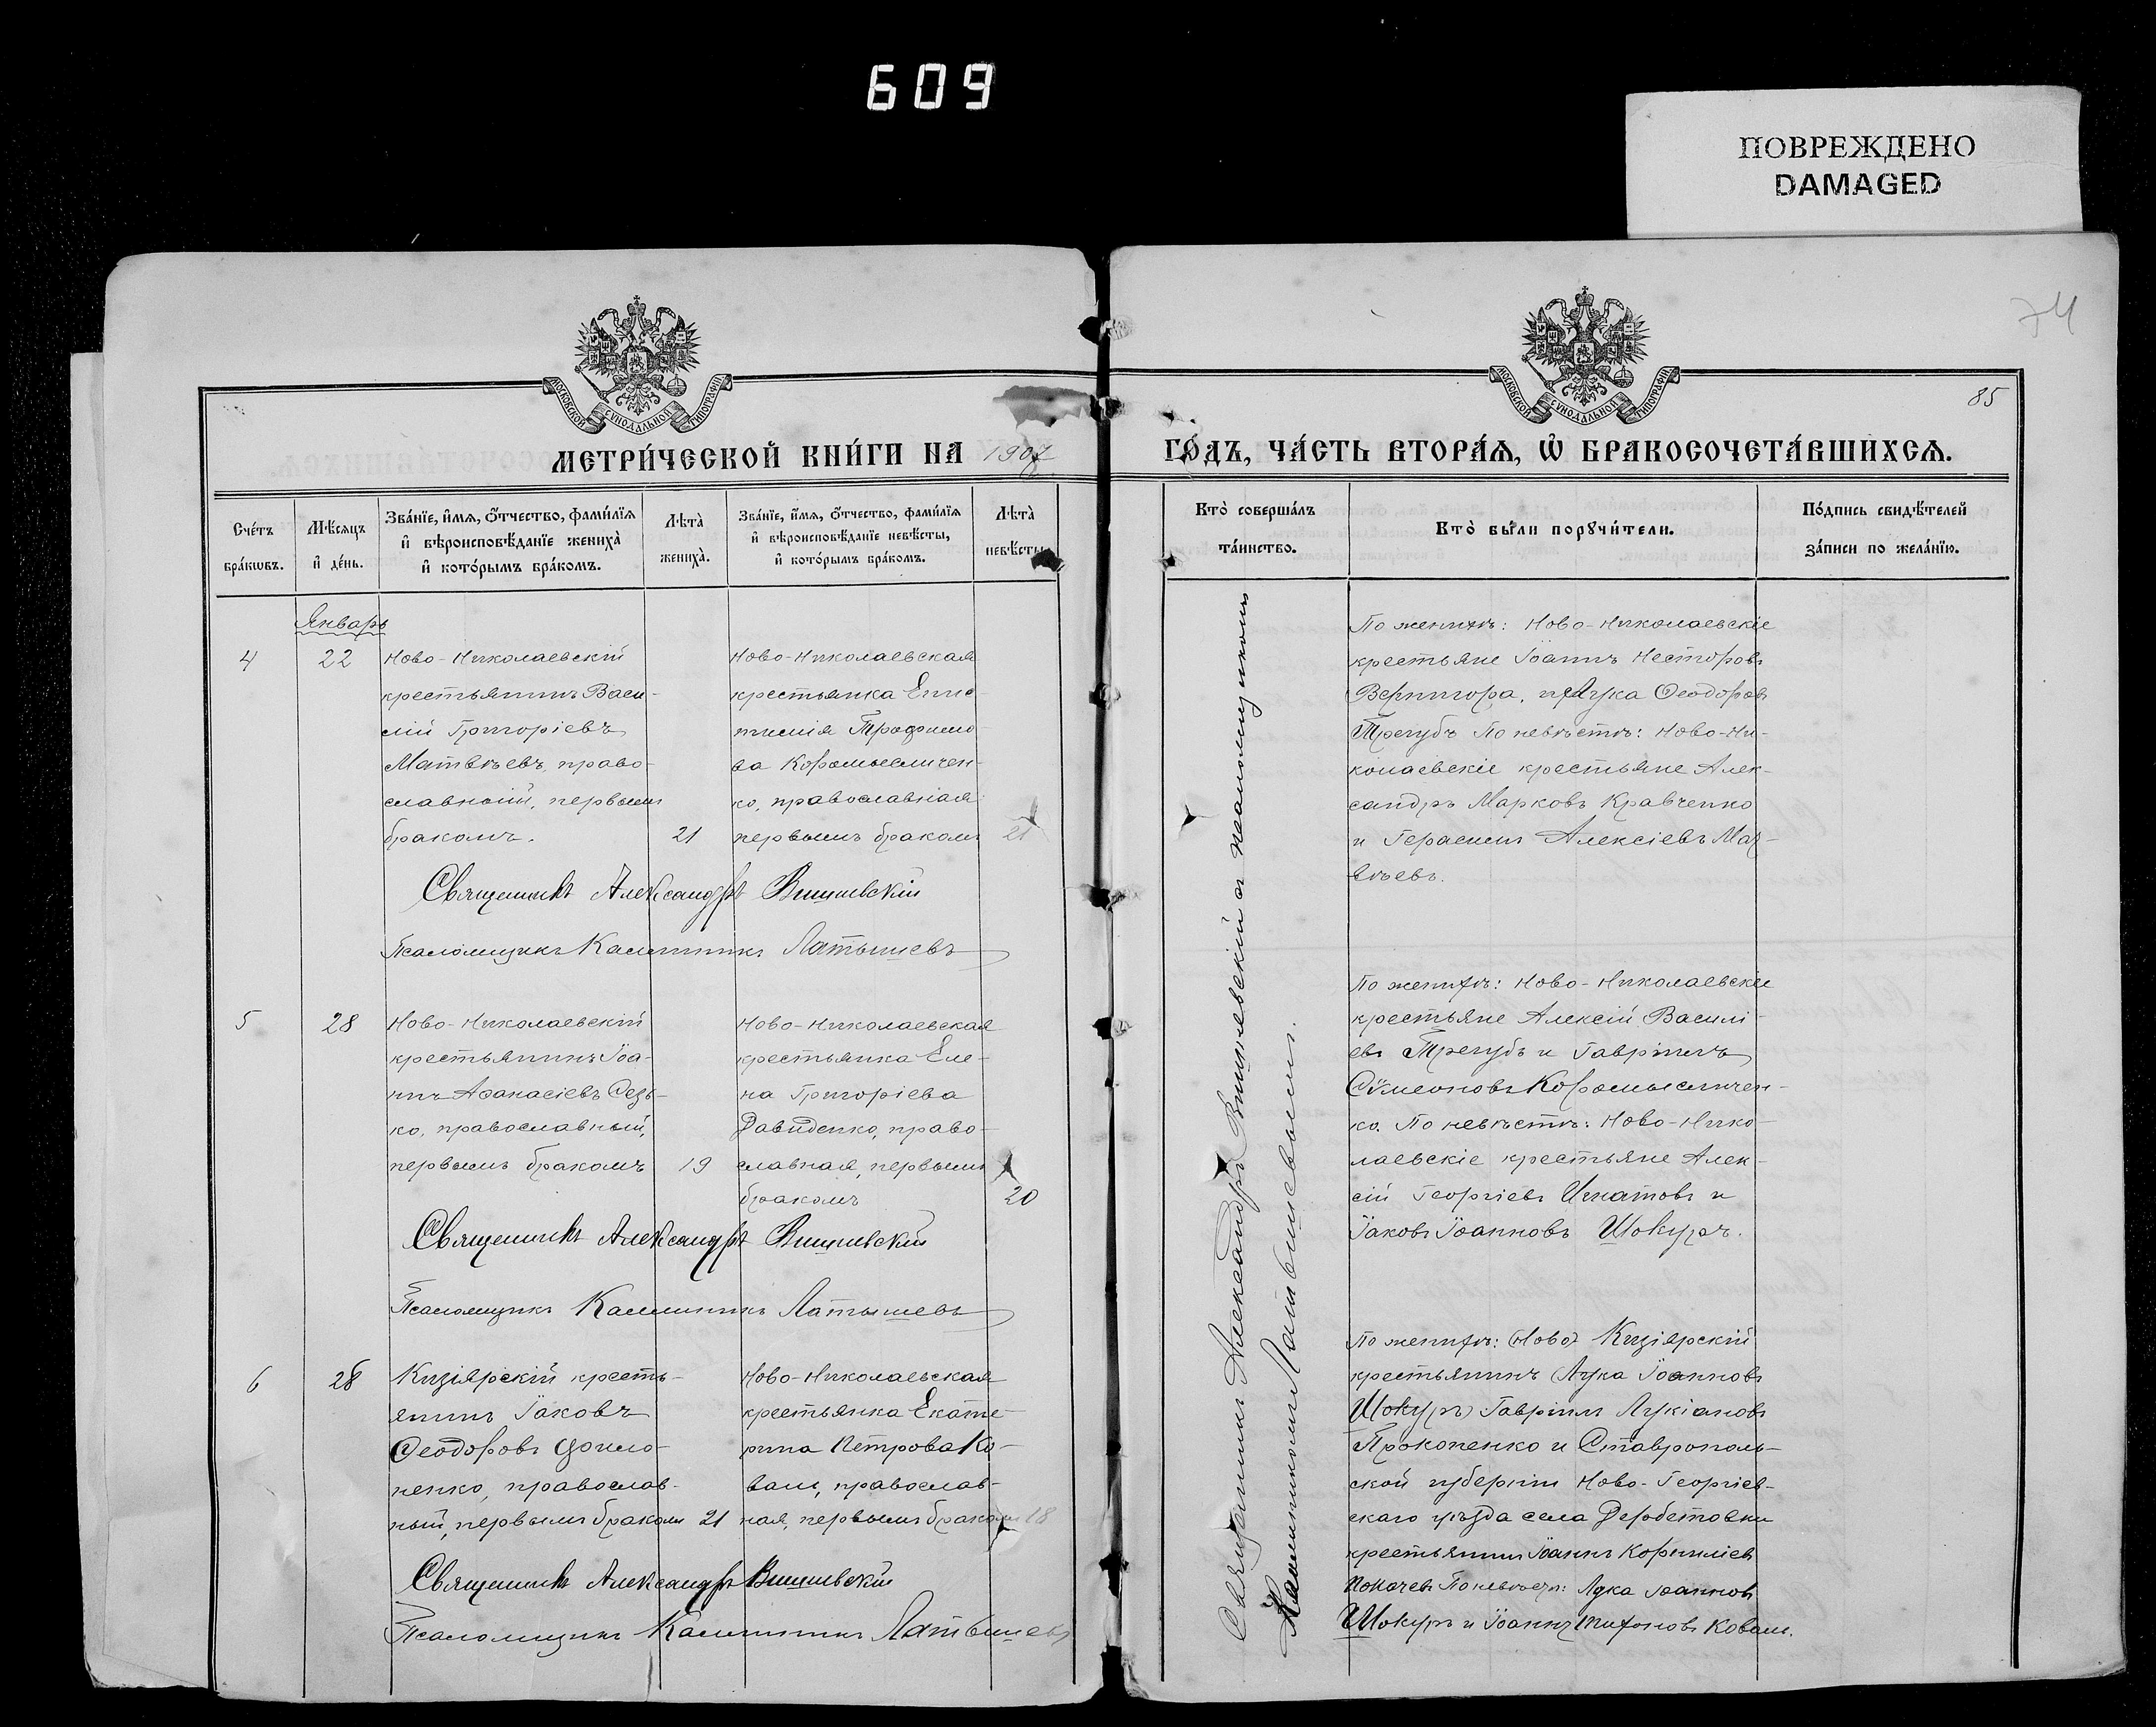 609
ПОВРЕЖДЕНО
DAMAGED
74
85
МОСКОВСКОЙ СѴНОДАЛЬНОЙ ТИПОГРАФІИ
МОСКОВСКОЙ СѴНОДАЛЬНОЙ ТИПОГРАФІИ
МЕТРИ́ЧЕСКОЙ КНИ́ГИ НА 1907
ГО́ДЪ, ЧА́СТЬ ВТОРА́Ѧ, Ѡ҆ БРАКОСОЧЕТА́ВШИХСѦ.
Сче́тъ
бра́кѡвъ.
Мѣ́сѧцъ
и҆ де́нь.
Зва́нїе, и҆́мѧ, ѻ҆́тчество, фами́лїѧ
и҆ вѣроисповѣ́данїе жениха̀
и҆ кото́рымъ бра́комъ.
Лѣ́та̀
жениха̀.
Зва́нїе, и҆́мѧ, ѻ҆́тчество, фами́лїѧ
и҆ вѣроисповѣ́данїе невѣ́сты,
и҆ кото́рымъ бра́комъ.
Лѣ́та̀
невѣ́сты
Кто̀ соверша́лъ
та́инство.
Кто̀ бы́ли порꙋчи́тели.
По́дпись свидѣ́телей
за́писи по жела́нїю.
Январь
4
22
Ново-Николаевскій
крестьянинъ Васи-
лій Григоріевъ
Матвѣевъ, право-
славный, первымъ
бракомъ.
21
Ново-Николаевская
крестьянка Епис-
тимія Трофимо-
ва Коромысличен-
ко, православная
первымъ бракомъ
21
Священникъ Александръ Вишневскій
Псаломщикъ Каллиникъ Латышевъ
5
28
Ново-Николаевскій
крестьянинъ Іоа-
ннъ Аѳанасіевъ Сезь-
ко, православный,
первымъ бракомъ
19
Ново-Николаевская
крестьянка Еле-
на Григоріева
Давиденко, право-
славная, первымъ
бракомъ
20
Священникъ Александръ Вишневскій
Псаломщикъ Каллиникъ Латышевъ
6
28
Кизіярскій кресть-
янинъ Іаковъ
Ѳеодоровъ
ненко, православ-
ный, первымъ бракомъ
21
Ново-Николаевская
крестьянка Екате-
рина Петрова Ко-
валь, православ-
ная, первымъ бракомъ
18
Священникъ Александръ Вишневскій
Псаломщикъ Каллиникъ Латышевъ
Священникъ Александръ Вишневскій съ псаломщикомъ
Каллиникомъ Латышевымъ.
По женихѣ: Ново-Николаевскіе
крестьяне Іоаннъ Несторовъ
Вернигора, и Лука Ѳеодоровъ
Трегубъ По невѣстѣ: Ново-Ни-
колаевскіе крестьяне Алек-
сандръ Марковъ Кравченко
и Герасимъ Алексіевъ Мат-
вѣевъ.
По женихѣ: Ново-Николаевскіе
крестьяне Алексій Василі-
евъ Трегубъ и Гавріилъ
Сѵмеоновъ Коромысличен-
ко. По невѣстѣ: Ново-Нико-
лаевскіе крестьяне Алек-
сій Георгіевъ Игнатовъ и
Іаковъ Іоанновъ Шокуръ.
По женихѣ: (Ново) Кизіярскій
крестьянинъ (Лука Іоанновъ
Шокуръ) Гавріилъ Лукіановъ
Прокопенко и Ставрополь-
ской губерніи Ново-Георгіев-
скаго уѣзда села Дербетовки
крестьянинъ Іоаннъ Корниліевъ
По невѣстѣ: Лука Іоанновъ
Шокуръ и Іоаннъ Тихоновъ Коваль.